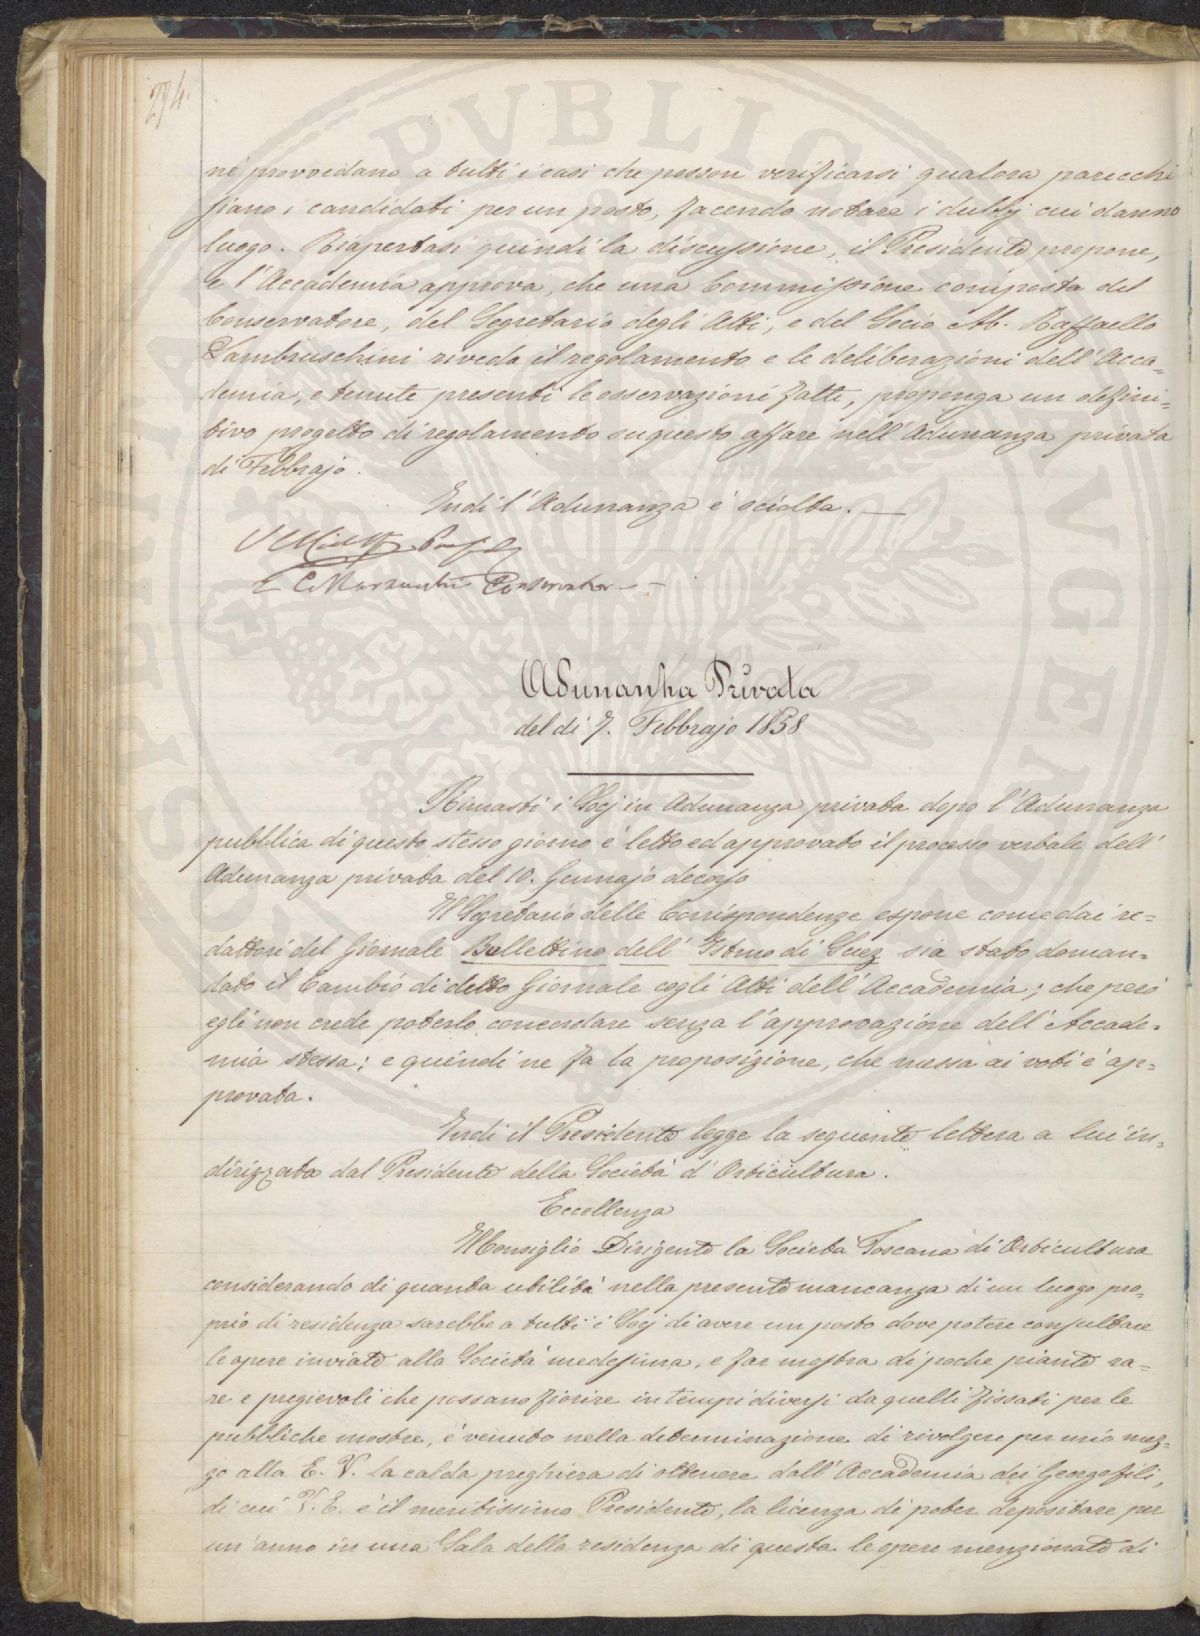 274.
nè provvedano a tutti i casi che posson verificarsi qualora parecchi
siano i candidati per un posto, facendo notare i dubbj cui danno
luogo. Riapertasi quindi la discussione, il Presidente propone,
e l'Accademia approva, che una Commissione composta del
Conservatore, del Segretario degli Atti, e del Socio Ab. Raffaello
Lambruschini riveda il regolamento e le deliberazioni dell'Acca=
demia, e tenute presenti le osservazioni fatte, proponga un defini=
tivo progetto di regolamento su questo affare nell'Adunanza privata
di Febbrajo.
Indi l'Adunanza è sciolta.
Conservatore
Adunanza Privata
del dì 7. Febbrajo 1858
Rimasti i Socj in Adunanza privata dopo l'Adunanza
pubblica di questo stesso giorno è letto ed approvato il processo verbale dell'
Adunanza privata del 10. Gennajo decorso
Il Segretario delle Corrispondenze espone come dai re=
dattori del Giornale Bullettino dell' Istmo di Suez sia stato doman=
dato il Cambio di detto Giornale cogli Atti dell'Accademia; che però
egli non crede poterlo concordare senza l'approvazione dell'Accade=
mia stessa; e quindi ne fa la proposizione, che messa ai voti è ap=
provata.
Indi il Presidente legge la seguente lettera a lui in=
dirizzata dal Presidente della Società d'Orticultura.
Eccellenza
Il Consiglio Dirigente la Società Toscana di Orticultura
considerando di quanta utilità nella presente mancanza di un luogo pro=
prio di residenza sarebbe a tutti i Socj di avere un posto dove potere consultare
le opere inviate alla Società medesima, e far mostra di poche piante ra=
re e pregievoli che possano fiorire in tempi diversi da quelli fissati per le
pubbliche mostre, è venuto nella determinazione di rivolgere per mio mez=
zo alla E. V. la calda preghiera di ottenere dall'Accademia dei Georgofili,
di cui V. E. è il meritissimo Presidente, la licenza di poter depositare per
un'anno in una Sala della residenza di questa le opere menzionate di